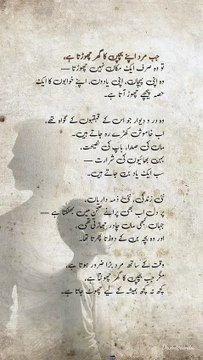 جب مرد اپنے بچپن کا گھر چھوڑتا ہے،
تو وہ صرف ایک مکان نہیں چھوڑتا —
وہ اپنی پہچان، اپنی یادوں، اپنے خوابوں کا ایک
حصہ پیچھے چھوڑ آتا ہے۔
وہ در و دیوار جو اس کے قہقہوں کے گواہ تھے،
اب خاموش کھڑے رہ جاتے ہیں۔
ماں کی صدا، باپ کی نصیحت،
بہن بھائیوں کی شرارت —
سب ایک یاد بن جاتے ہیں۔
نئی زندگی، نئی ذمہ داریاں،
پر دل اب بھی پرانے صحن میں بھٹکتا ہے —
جہاں کبھی ماں چادر بچھاتی تھی،
اور وہ بچہ بن کے دوڑتا پھرتا تھا۔
وقت کے ساتھ مرد بڑا ضرور ہوتا ہے،
مگر جب بچپن کا گھر چھوٹتا ہے،
کچھ نہ کچھ ہمیشہ کے لیے چھوٹ جاتا ہے۔